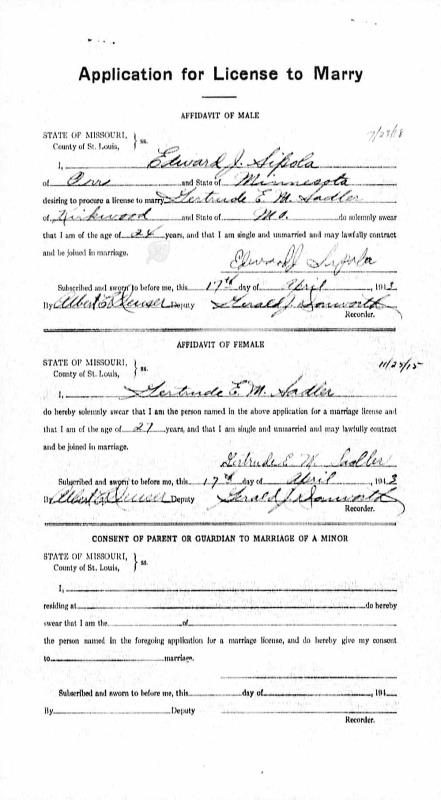 Application for License to Marry
AFFIDAVIT OF MALE
STATE OF MISSOURI, } ss.
County of St. Louis,
I, Edward J. Sipola
of and State of Minnesota
desiring to procure a license to marry Gertrude E. M. Sadler
of Kirkwood and State of Mo. do solemnly swear
that I am of the age of years, and that I am single and unmarried and may lawfully contract
and be joined in marriage.
Edward J Sipola
Subscribed and sworn to before me, this 17th day of April 1913
By Albert Deputy Gerald J.
Recorder.
AFFIDAVIT OF FEMALE
STATE OF MISSOURI, } ss.
County of St. Louis,
I, Gertrude E. M. Sadler
do hereby solemnly swear that I am the person named in the above application for a marriage license and
that I am of the age of 27 years, and that I am single and unmarried and may lawfully contract
and be joined in marriage.
Gertrude E M Sadler
Subscribed and sworn to before me, this 17th day of April 1913
By Albert Deputy Gerald J.
Recorder.
CONSENT OF PARENT OR GUARDIAN TO MARRIAGE OF A MINOR
STATE OF MISSOURI, } ss.
County of St. Louis,
I,
residing at do hereby
swear that I am the of
the person named in the foregoing application for a marriage license, and do hereby give my consent
to marriage.
Subscribed and sworn to before me, this day of , 191
By Deputy
Recorder.